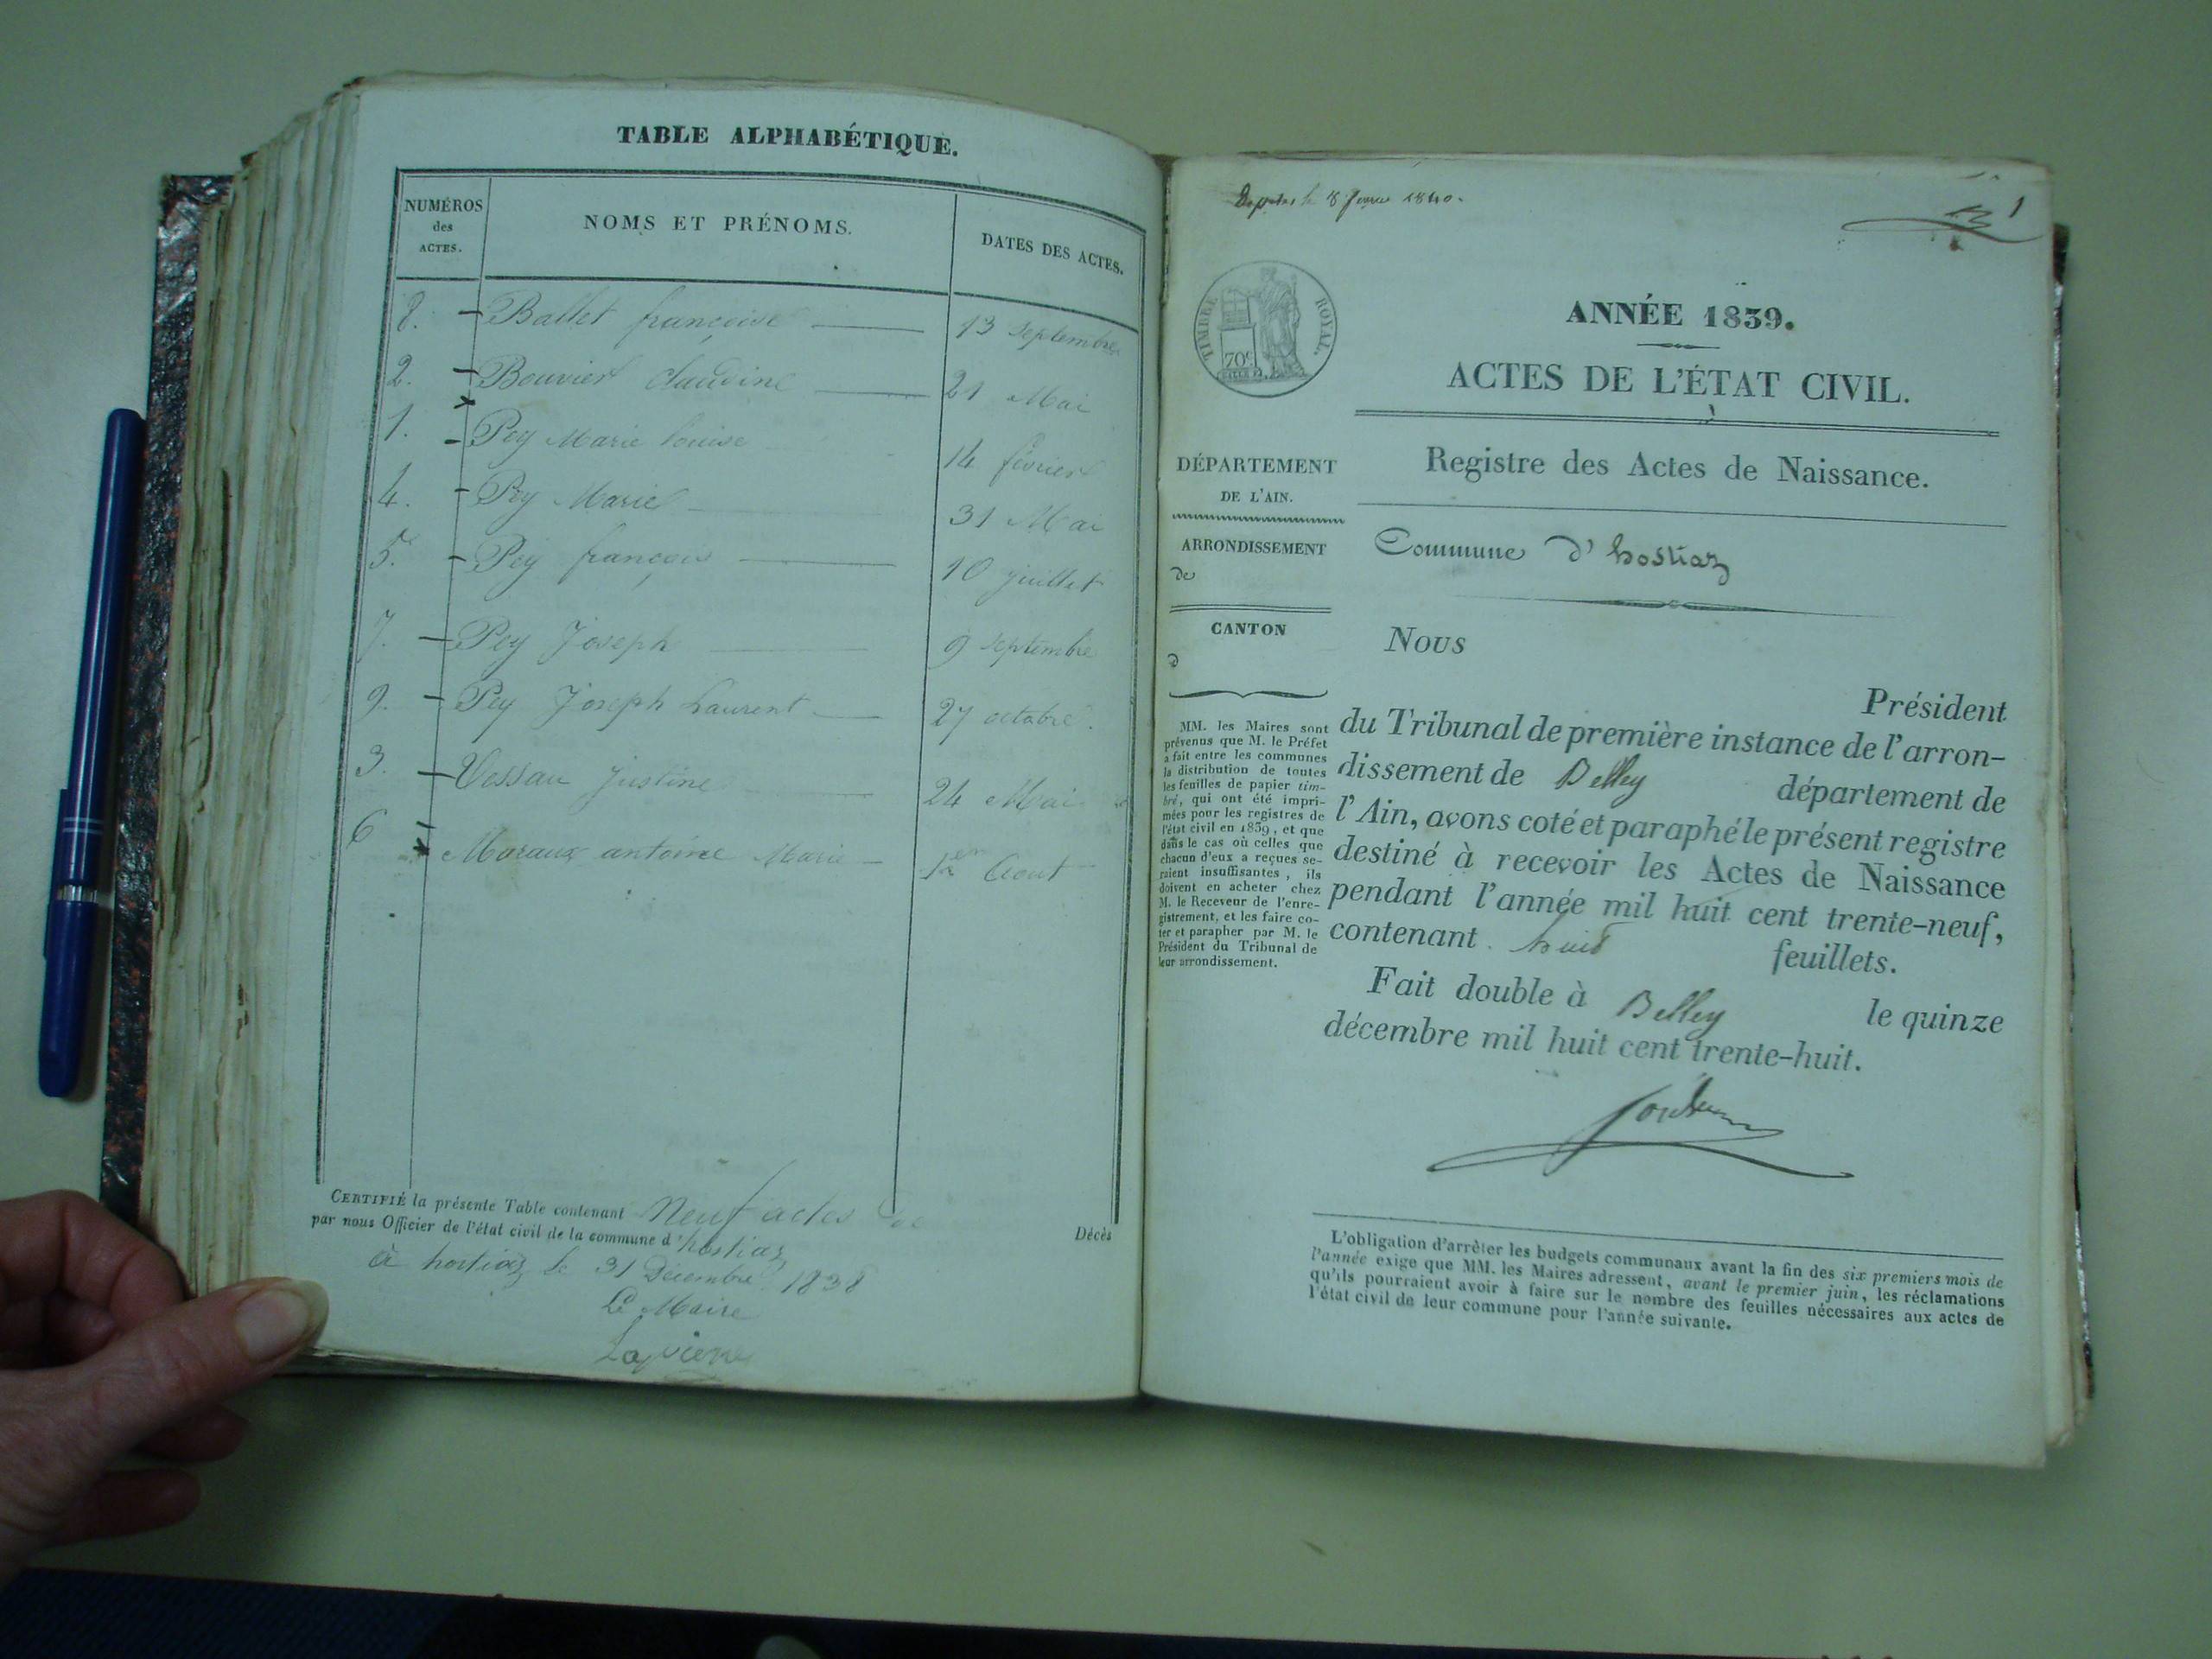 TABLE ALPHABÉTIQUE.
NUMÉROS des ACTES. NOMS ET PRÉNOMS. DATES DES ACTES.
8. Ballet françoise 13 septembre
2. Bouvier Claudine 21 Mai
1. Pey Marie louise 14 février
4. Pey Marie 31 Mai
5. Pey françois 10 juillet
7. Pey Joseph 9 septembre
9. Pey Joseph Laurent 27 octobre.
3. Vessau justine 24 Mai
6 Moraux antoine Marie 1er Aout
CERTIFIÉ la présente Table contenant Neuf actes de Décès
par nous Officier de l'état civil de la commune d'hostiaz
à hostiaz le 31 Décembre 1838
Le Maire
1840.
1
TIMBRE ROYAL.
70c
ANNÉE 1839.
ACTES DE L'ÉTAT CIVIL.
DÉPARTEMENT
DE L'AIN.
ARRONDISSEMENT
de
CANTON
d
MM. les Maires sont
prévenus que M. le Préfet
a fait entre les communes
la distribution de toutes
les feuilles de papier tim-
bré, qui ont été impri-
mées pour les registres de
l'état civil en 1839, et que
dans le cas où celles que
chacun d'eux a reçues se-
raient insuffisantes, ils
doivent en acheter chez
M. le Receveur de l'enre-
gistrement, et les faire co-
ter et parapher par M. le
Président du Tribunal de
leur arrondissement.
Registre des Actes de Naissance.
Commune d'hostiaz
Nous
Président
du Tribunal de première instance de l'arron-
dissement de Belley département de
l'Ain, avons coté et paraphé le présent registre
destiné à recevoir les Actes de Naissance
pendant l'année mil huit cent trente-neuf,
contenant huit feuillets.
Fait double à Belley le quinze
décembre mil huit cent trente-huit.
L'obligation d'arrêter les budgets communaux avant la fin des six premiers mois de
l'année exige que MM. les Maires adressent, avant le premier juin, les réclamations
qu'ils pourraient avoir à faire sur le nombre des feuilles nécessaires aux actes de
l'état civil de leur commune pour l'année suivante.